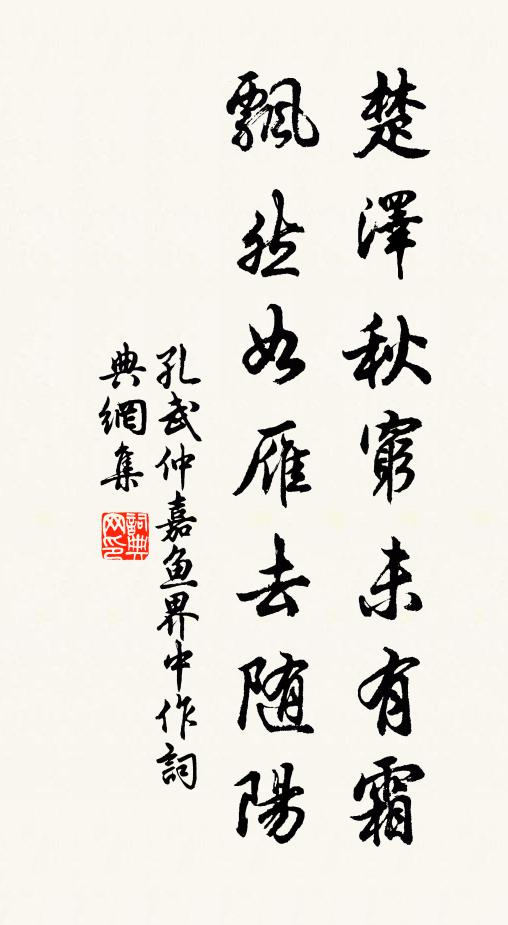 楚澤秋窮未有霜
飄然如雁去隨陽
孔武仲嘉魚界中作詞
典網集
詞典
网印